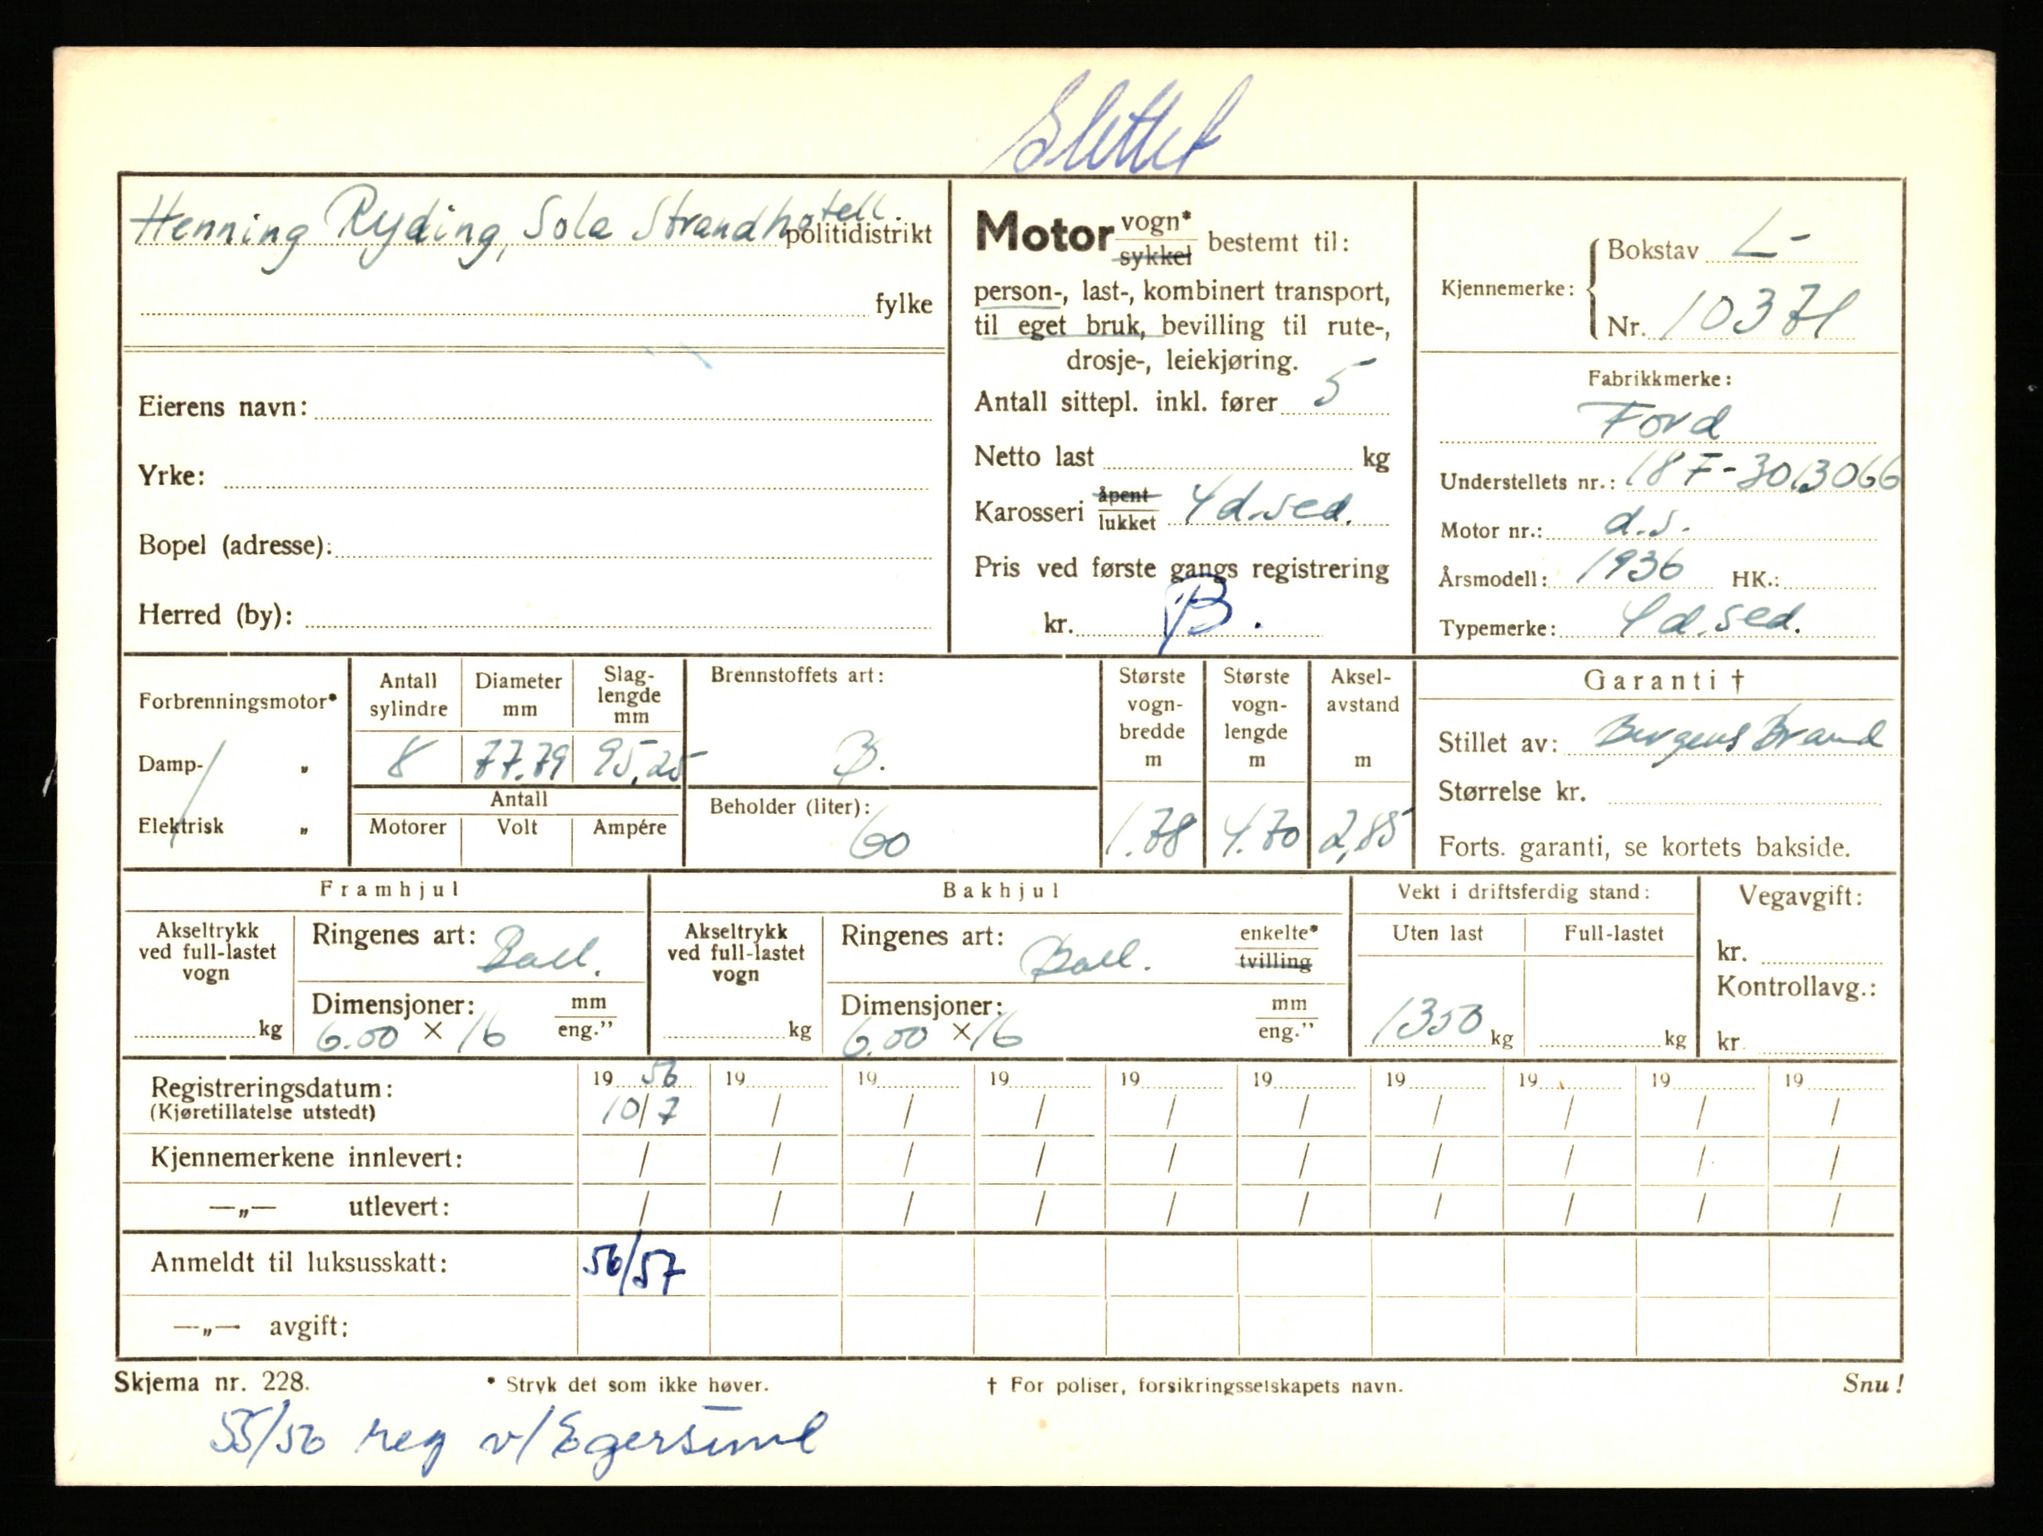 Slettet
Henning Ryding, Sola Strandhotell.
politidistrikt
fylke
Eierens navn:
Yrke:
Bopel (adresse):
Herred (by):
Motor vogn* sykkel bestemt til:
person-, last-, kombinert transport,
til eget bruk, bevilling til rute-,
drosje-, leiekjøring.
Antall sittepl. inkl. fører 5
Netto last kg
Karosseri åpent lukket 4 d. sed.
Pris ved første gangs registrering
kr. B.
Kjennemerke: Bokstav L-
Nr. 10371
Fabrikkmerke:
Ford
Understellets nr.: 18 F-3013066
Motor nr.: d.s.
Årsmodell: 1936 HK.:
Typemerke: 4 d. sed.
Forbrenningsmotor*
Damp- „
Elektrisk „
Antall sylindre
Diameter mm
Slag-lengde mm
8 77.79 95,25
Antall
Motorer Volt Ampére
Brennstoffets art:
B.
Beholder (liter):
60
Største vogn-bredde m
Største vogn-lengde m
Aksel-avstand m
1.78 4.70 2,85
Garanti †
Stillet av: Bergens Brand
Størrelse kr.
Forts. garanti, se kortets bakside.
Framhjul
Akseltrykk ved full-lastet vogn
kg
Ringenes art: Ball.
Dimensjoner: mm
6.00 × 16 eng.”
Bakhjul
Akseltrykk ved full-lastet vogn
kg
Ringenes art: Ball. enkelte* tvilling
Dimensjoner: mm
6.00 × 16 eng.”
Vekt i driftsferdig stand:
Uten last Full-lastet
1350 kg kg
Vegavgift:
kr.
Kontrollavg.:
kr.
Registreringsdatum: 19 56 19 19 19 19 19 19 19 19 19
(Kjøretillatelse utstedt) 10/7 / / / / / / / / /
Kjennemerkene innlevert: / / / / / / / / / /
—„— utlevert: / / / / / / / / / /
Anmeldt til luksusskatt: 56/57
—„— avgift:
Skjema nr. 228. * Stryk det som ikke høver. † For poliser, forsikringsselskapets navn. Snu!
55/56 reg v/Egersund